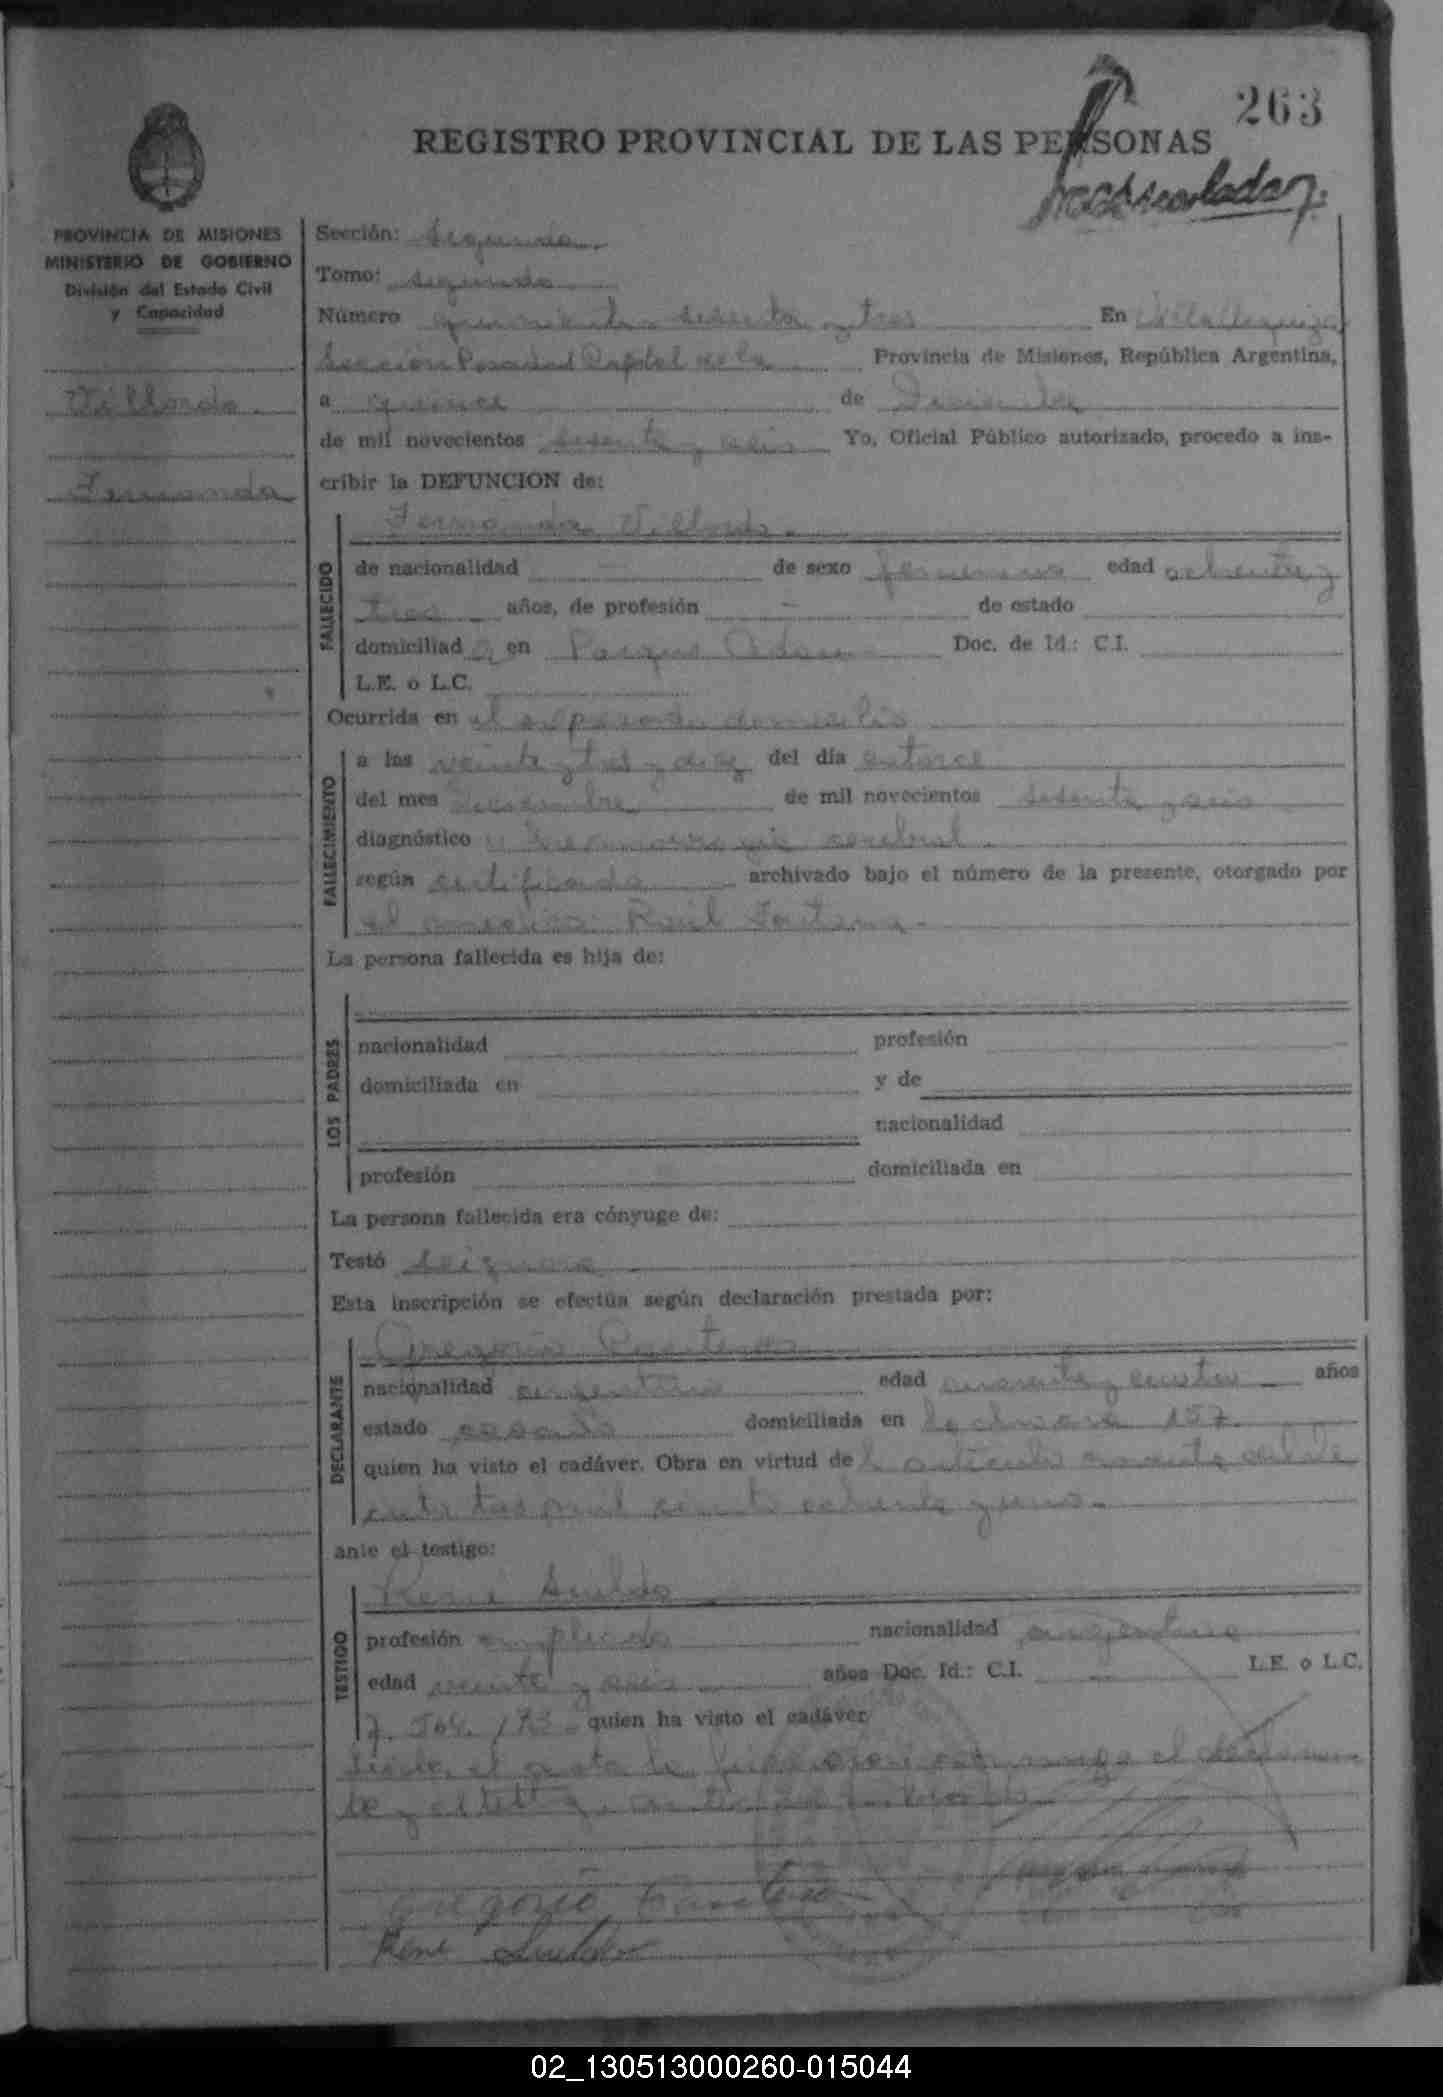 263
REGISTRO PROVINCIAL DE LAS PERSONAS
PROVINCIA DE MISIONES
MINISTERIO DE GOBIERNO
División del Estado Civil
y Capacidad
Villordo
Fernanda
Sección: Segunda.
Tomo: segundo
Número quinientos sesenta y tres En Villa Urquiza
Sección Posadas Capital de la Provincia de Misiones, República Argentina,
a quince de Diciembre
de mil novecientos sesenta y seis Yo, Oficial Público autorizado, procedo a ins-
cribir la DEFUNCION de:
FALLECIDO
Fernanda Villordo.
de nacionalidad — de sexo femenino edad ochenta y
tres años, de profesión — de estado
domiciliad a en Parque Adam Doc. de Id.: C.I.
L.E. o L.C.
Ocurrida en el expresado domicilio
FALLECIMIENTO
a las veinte y tres y diez del día catorce
del mes Diciembre de mil novecientos sesenta y seis
diagnóstico Hemorragia cerebral.
según certificado archivado bajo el número de la presente, otorgado por
el médico: Raúl
La persona fallecida es hija de:
LOS PADRES
nacionalidad profesión
domiciliada en y de
nacionalidad
profesión domiciliada en
La persona fallecida era cónyuge de:
Testó se ignora
Esta inscripción se efectúa según declaración prestada por:
DECLARANTE
Gregorio
nacionalidad argentino edad cuarenta y cuatro años
estado casado domiciliada en 157
quien ha visto el cadáver. Obra en virtud de l artículo cuarenta
mil ciento ochenta y uno.
ante el testigo:
TESTIGO
René Sueldo
profesión empleado nacionalidad argentino
edad veinte y seis años Doc. Id.: C.I. — L.E. o L.C.
7. 564. 173 quien ha visto el cadáver
Leída el acta la firman conmigo el declaran
te y el testigo
Gregorio
René Sueldo
02_130513000260-015044